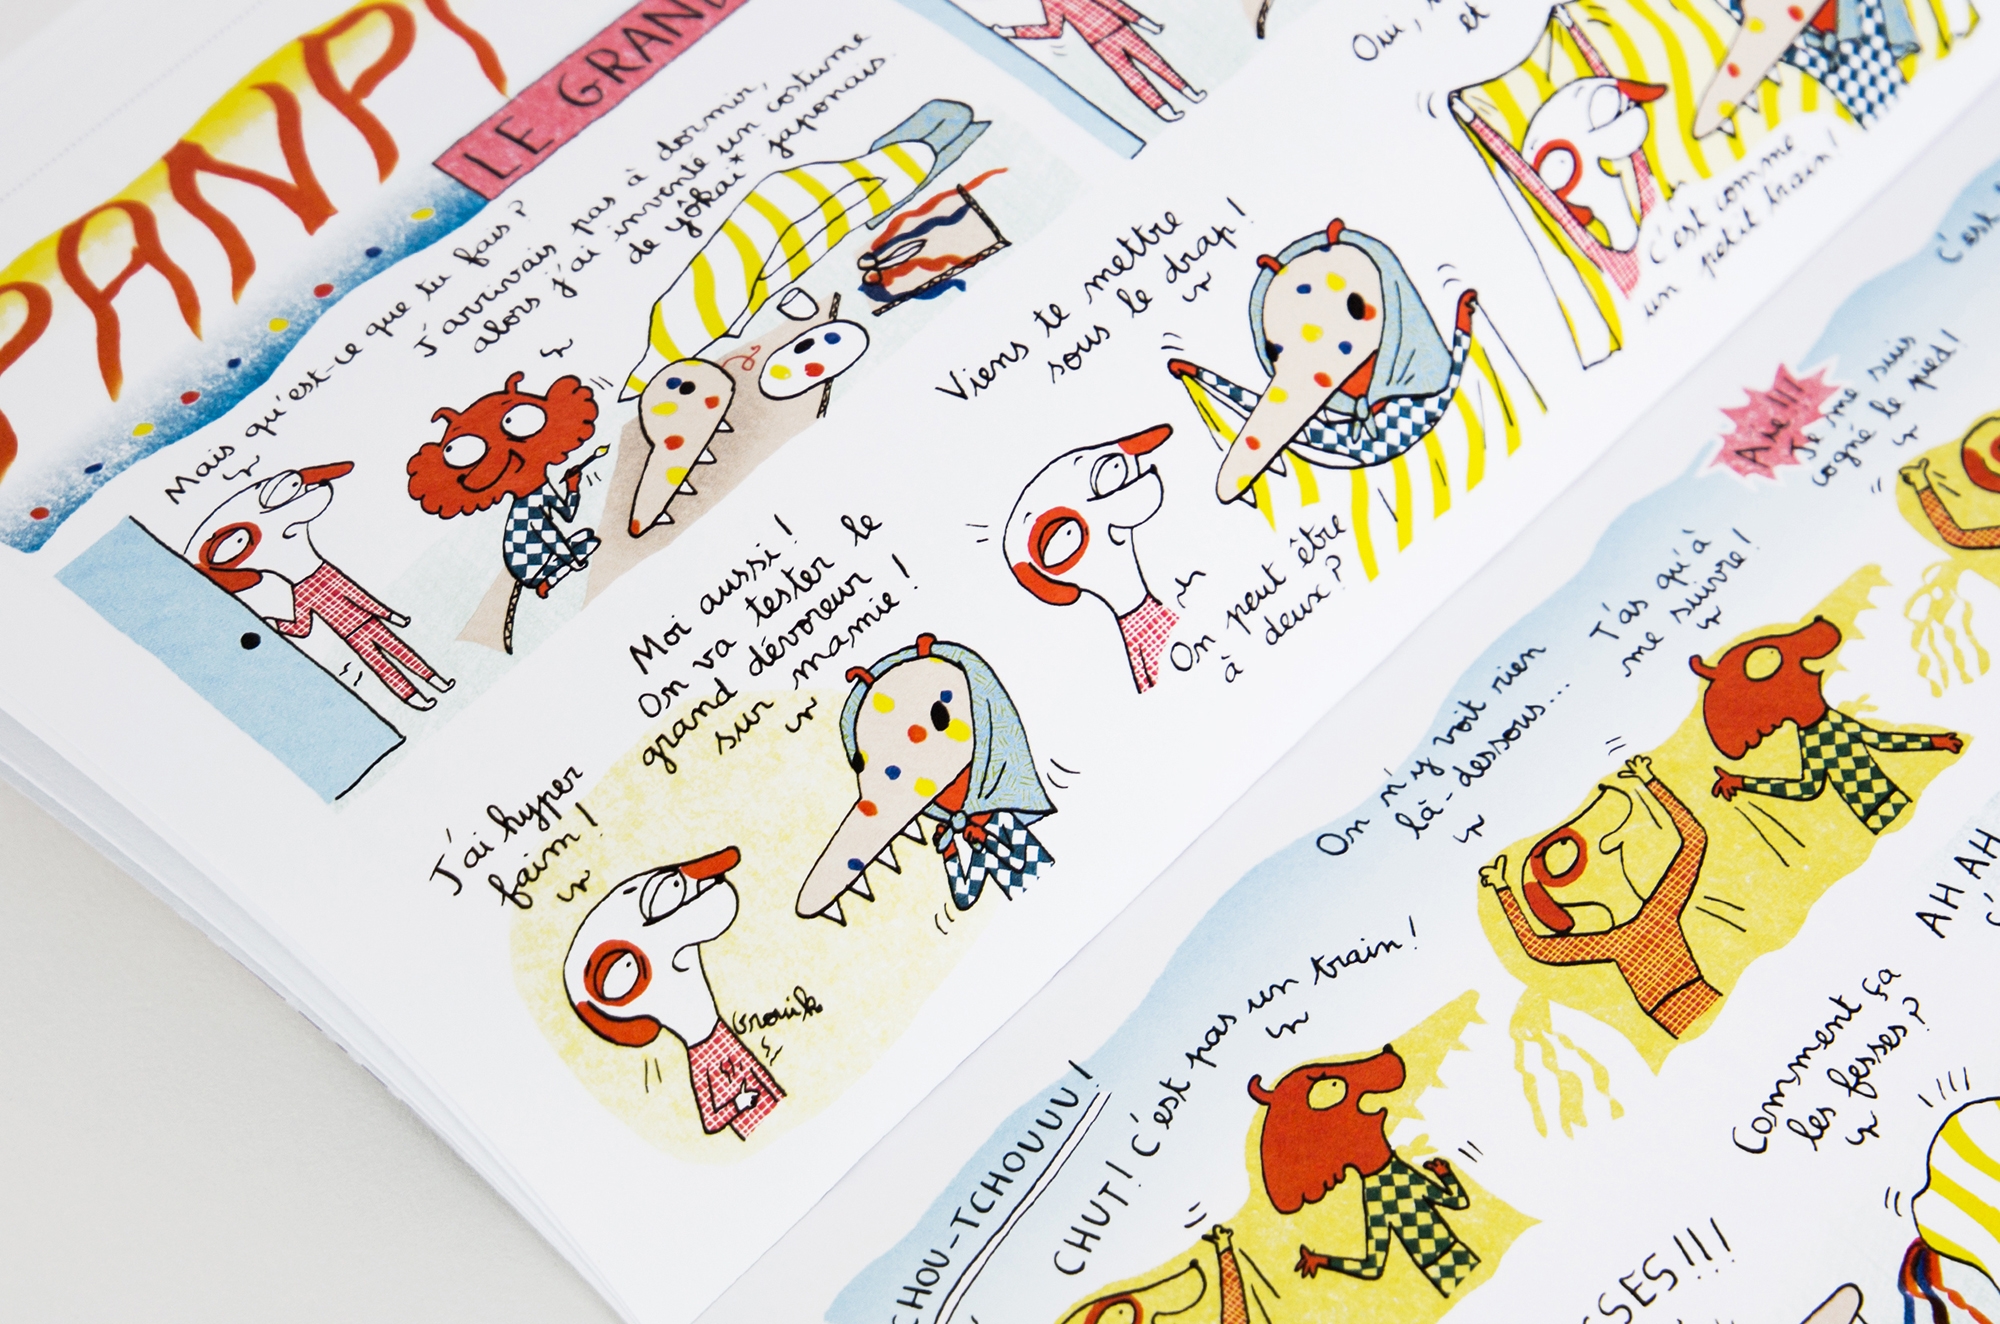 PANPI
LE GRAND
Mais qu'est-ce que tu fais ?
J'arrivais pas à dormir,
alors j'ai inventé un costume
de yôkai* japonais.
Oui,
et
C'est comme
un petit train !
J'ai hyper
faim !
Grouik
Moi aussi !
On va tester le
grand dévoreur
sur mamie !
Viens te mettre
sous le drap !
On peut être
à deux ?
CHOU-TCHOUUU !
CHUT ! C'est pas un train !
On n'y voit rien
là-dessous...
T'as qu'à
me suivre !
Aïe !!!
Je me suis
cogné le pied !
c'est
AH AH
Comment ça
les fesses ?
SSES !!!